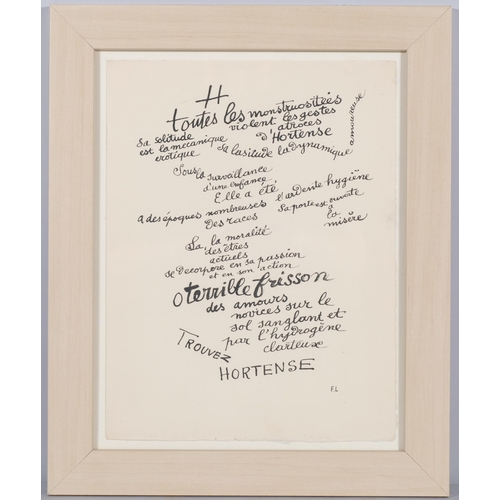 H
toutes les monstruosités
violent les gestes
atroces
d'Hortense
Sa solitude
est la mécanique
érotique
Sa lassitude la dynamique
amoureuse
Sous
la surveillance
d'une enfance
Elle a été
a des époques nombreuses
l'ardente hygiène
Des races
Sa porte est ouverte
à
la
misère
Là, la moralité
des êtres
actuels
se Décorpore en sa passion
et en son action
O terrible frisson
des amours
novices sur le
sol sanglant et
par l'hydrogène
clarteux
TROUVEZ
HORTENSE
F.L